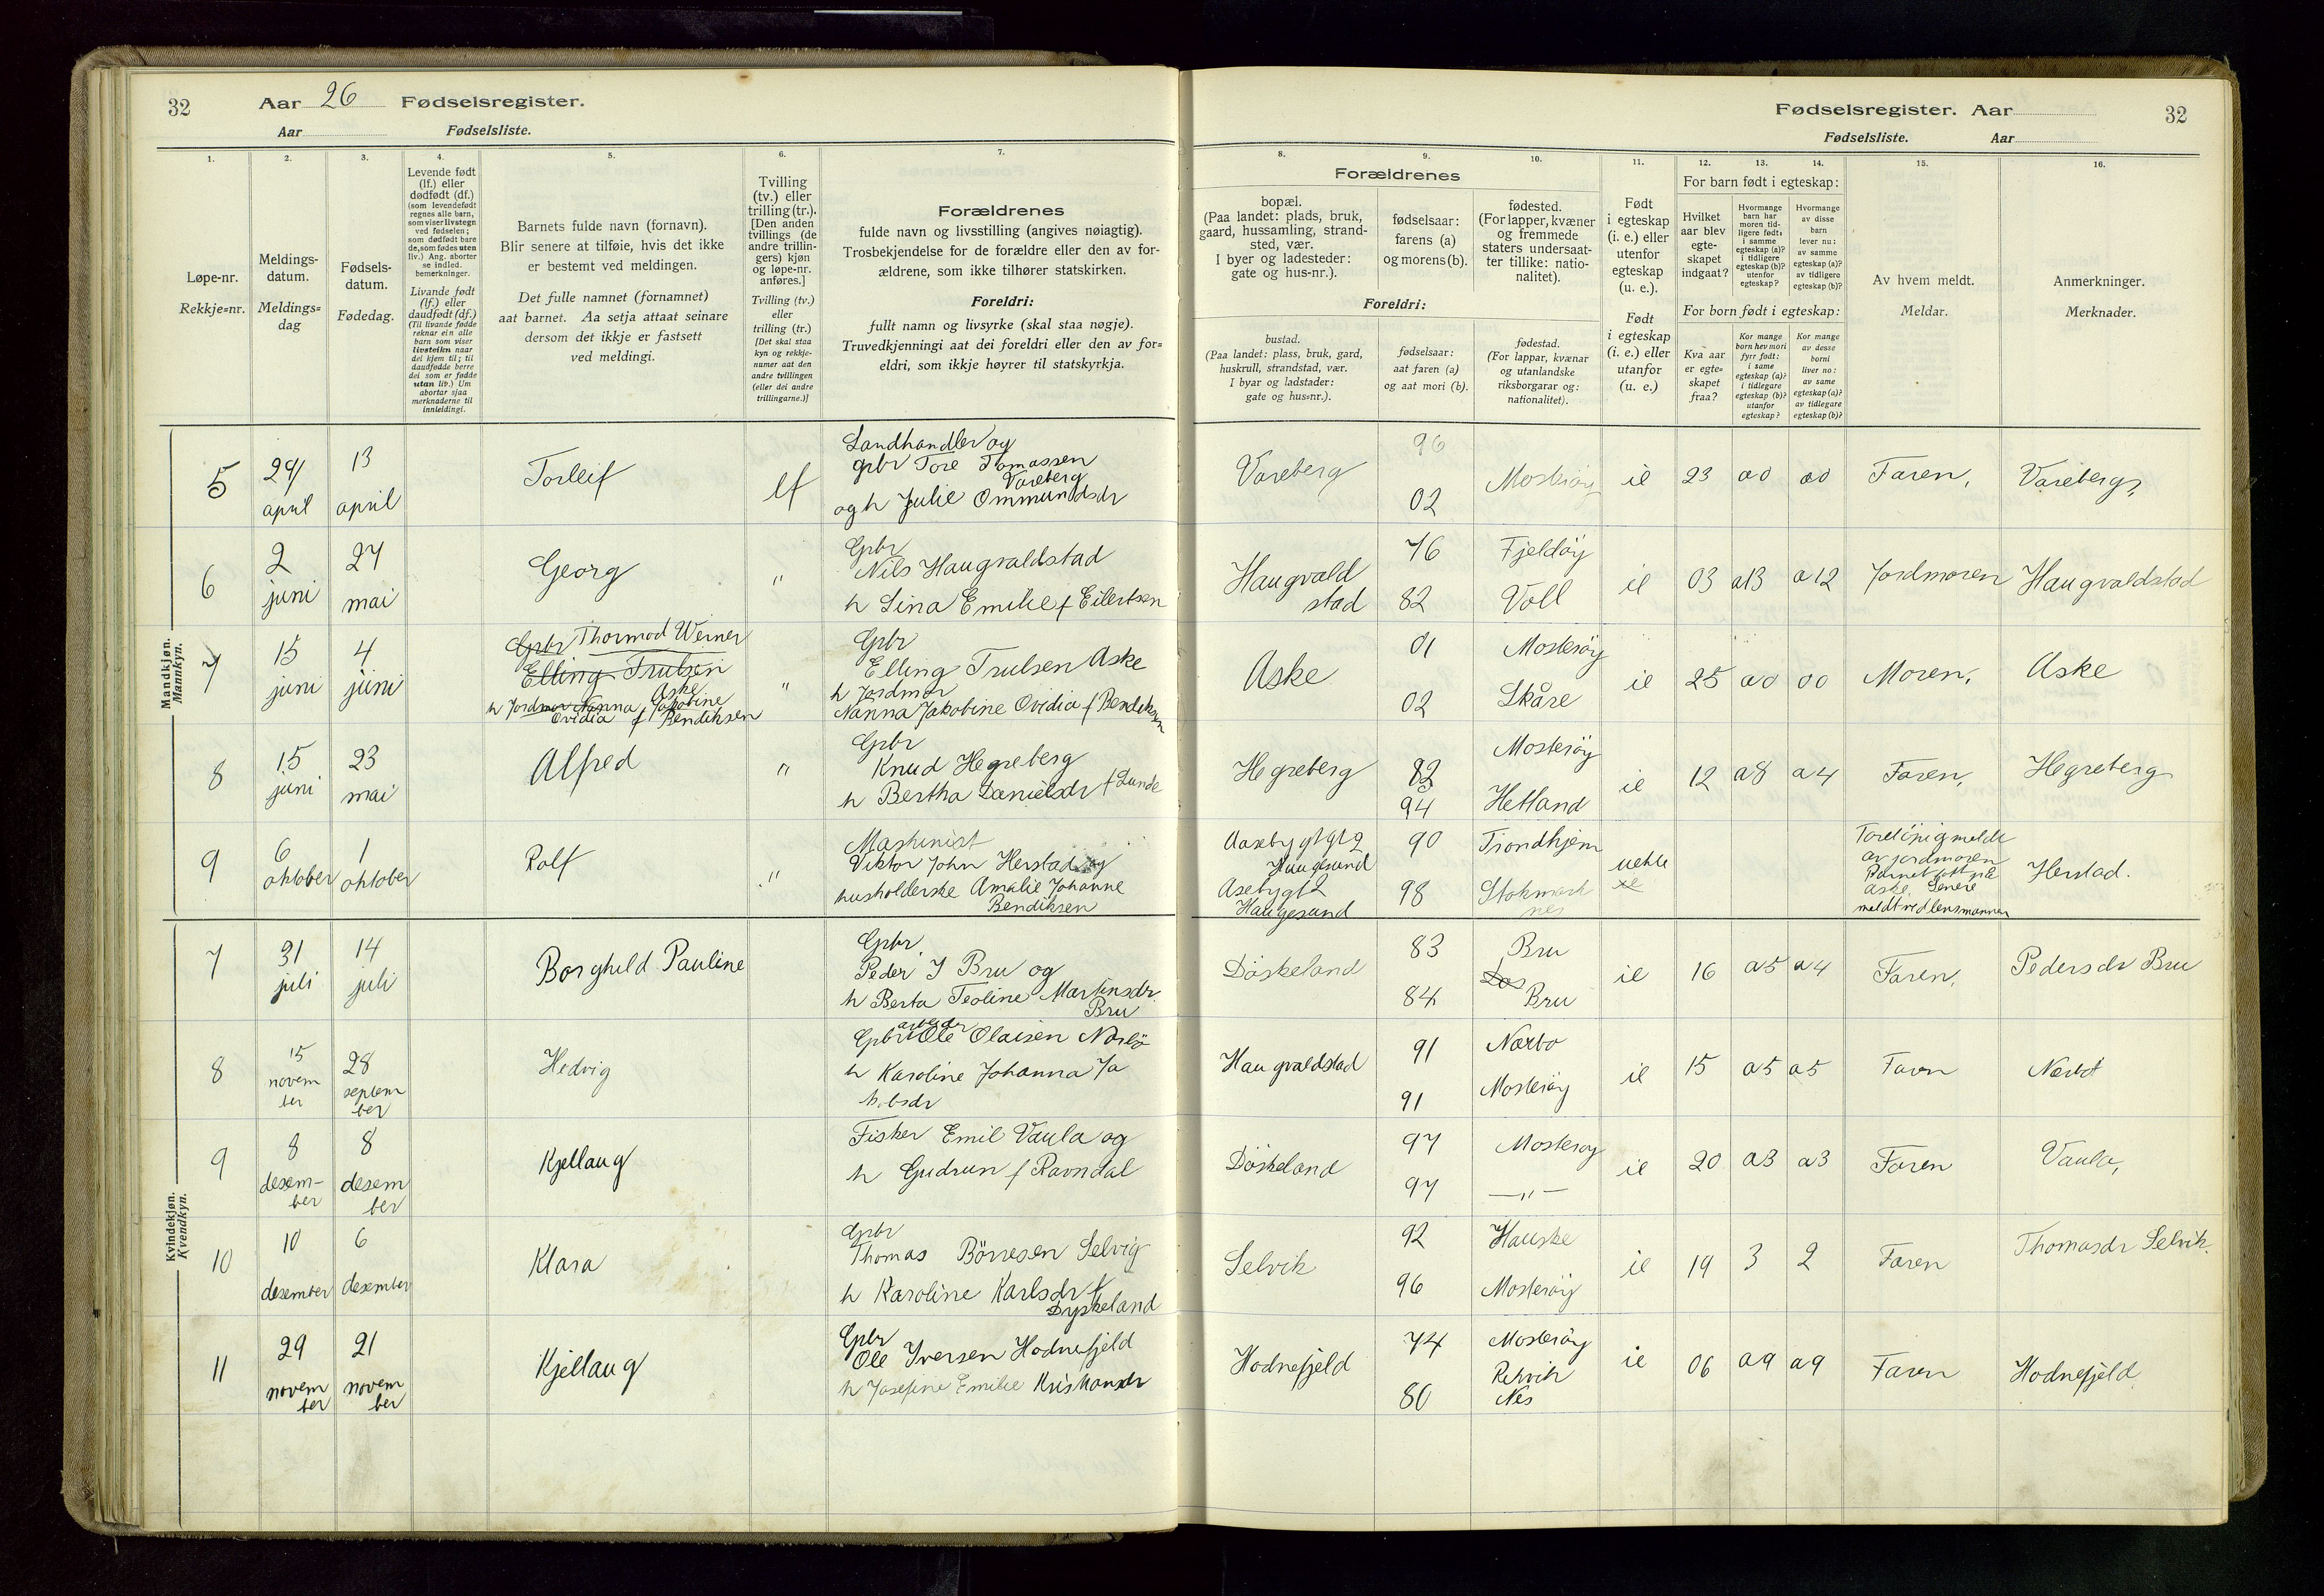 32
Aar 26 Fødselsregister.
Aar Fødselsliste.
Fødselsregister. Aar
32
Fødselsliste. Aar
1.
Løpe-nr.
Rekkje=nr.
2.
Meldings-
datum.
Meldings=
dag
3.
Fødsels-
datum.
Fødedag.
4.
Levende født
(lf.) eller
dødfødt (df.)
(som levendefødt
regnes alle barn,
som viser livstegn
ved fødselen;
som dødfødt bare
de, som fødes uten
liv.) Ang. aborter
se indled.
bemerkninger.
Livande født
(lf.) eller
daudfødt (df.)
(Til livande fødde
reknar ein alle
barn som viser
livsteikn naar
dei kjem til; til
daudfødde berre
dei som er fødde
utan liv.) Um
abortar sjaa
merknaderne til
innleidingi.
5.
Barnets fulde navn (fornavn).
Blir senere at tilføie, hvis det ikke
er bestemt ved meldingen.
Det fulle namnet (fornamnet)
aat barnet. Aa setja attaat seinare
dersom det ikkje er fastsett
ved meldingi.
6.
Tvilling
(tv.) eller
trilling (tr.).
[Den anden
tvillings (de
andre trillin-
gers) kjøn
og løpe-nr.
anføres.]
Tvilling (tv.)
eller
trilling (tr.)
[Det skal staa
kyn og rekkje-
numer aat den
andre tvillingen
(eller dei andre
trillingarne.)]
7.
Forældrenes
fulde navn og livsstilling (angives nøiagtig).
Trosbekjendelse for de forældre eller den av for-
ældrene, som ikke tilhører statskirken.
Foreldri:
fullt namn og livsyrke (skal staa nøgje).
Truvedkjenningi aat dei foreldri eller den av for=
eldri, som ikkje høyrer til statskyrkja.
Forældrenes
8.
bopæl.
(Paa landet: plads, bruk,
gaard, hussamling, strand-
sted, vær.
I byer og ladesteder:
gate og hus-nr.).
9.
fødselsaar:
farens (a)
og morens (b).
10.
fødested.
(For lapper, kvæner
og fremmede
staters undersaat-
ter tillike: natio-
nalitet).
Foreldri:
bustad.
(Paa landet: plass, bruk, gard,
huskrull, strandstad, vær.
I byar og ladstader:
gate og hus=nr.).
fødselsaar:
aat faren (a)
og aat mori (b).
fødestad.
(For lappar, kvænar
og utanlandske
riksborgarar og:
nationalitet).
11.
Født
i egteskap
(i. e.) eller
utenfor
egteskap
(u. e.).
Født
i egteskap
(i. e.) eller
utanfor
(u. e.)
12.
13.
14.
For barn født i egteskap:
Hvilket
aar blev
egte-
skapet
indgaat?
Hvormange
barn har
moren tid-
ligere født:
i samme
egteskap (a)?
i tidligere
egteskap (b)?
utenfor
egteskap?
Hvormange
av disse
barn
lever nu:
av samme
egteskap (a)?
av tidligere
egteskap (b)?
For born født i egteskap:
Kva aar
er egte=
skapet
fraa?
Kor mange
born hev mori
fyrr født:
i same
egteskap (a)?
i tidlegare
egteskap (b)?
utanfor
egteskap?
Kor mange
av desse
borni
liver no:
av same
egteskap (a)?
av tidlegare
egteskap (b)?
15.
Av hvem meldt.
Meldar.
16.
Anmerkninger.
Merknader.
Mandkjøn.
Mannkyn.
5 29/ april 13 april Torleif lf Landhandler og
gpbr Tore Tomassen
Vareberg
og h Julie Ommundsdr
Vareberg 96 02 Mosterøy ie 23 a0 a0 Faren, Vareberg,
6 2 juni 27 mai Georg " Gpbr
Nils Haugvaldstad
h Lina Emilie f Eilertsen
Haugvald
stad 76 82 Fjeldøy Voll ie 03 a13 a12 Jordmoren Haugvaldstad
7 15 juni 4 juni Gpbr Thormod Werner
Elling Trulsen
Aske
h Jordmor Nanna Jakobine
Ovidia f Bendiksen
" Gpbr
Elling Trulsen Aske
h Jordmor
Nanna Jakobine Ovidia f Bendiksen
Aske 01 02 Mosterøy Skåre ie 25 a0 00 Moren, Aske
8 15 juni 23 mai Alfred " Gpbr
Knud Hegreberg
h Bertha Danielsdr f Lunde
Hegreberg 82 94 Mosterøy Hetland ie 12 a8 a4 Faren, Hegreberg
9 6 oktober 1 oktober Rolf " Maskinist
Viktor John Herstad og
husholderske Amalie Johanne
Bendiksen
Haugesund
Haugesund
90 98 Trondhjem Stokmark
nes
uekte
Foreløpig meldt
av jordmoren
Barnet født på
Aske. Senere
meldt ved lensmannen
Herstad.
Kvindekjøn.
Kvendkyn.
7 31 juli 14 juli Borghild Pauline Gpbr
Peder J Bru og
h Berta Teoline Martinsdr
Bru
Døskeland 83 84 Bru Bru ie 16 a5 a4 Faren, Pedersdr Bru
8 15 novem
ber 28 septem
ber Hedvig arbeider
Gpbr Ole Olaisen Nærbø
h Karoline Johanna Ja
kobsdr
Haugvaldstad 91 91 Nærbo Mosterøy ie 15 a5 a5 Faren Nærbø
9 8 desem-
ber 8 desem
ber Kjellaug Fisker Emil Vaula og
h Gudrun f Ravndal
Døskeland 97 97 Mosterøy —"— ie 20 a3 a3 Faren Vaula,
10 10 desember 6 desember Klara Gpbr
Thomas Børresen Selvig
h Karoline Karlsdr f
Dyskeland
Selvik 92 96 Hauske Mosterøy ie 19 3 2 Faren Thomasdr Selvik.
11 29 novem
ber 21 novem
ber Kjellaug Gpbr
Ole Iversen Hodnefjeld
h Josefine Emilie Kristiansdr
Hodnefjeld 74 80 Mosterøy
Nes ie 06 a9 a9 Faren Hodnefjeld